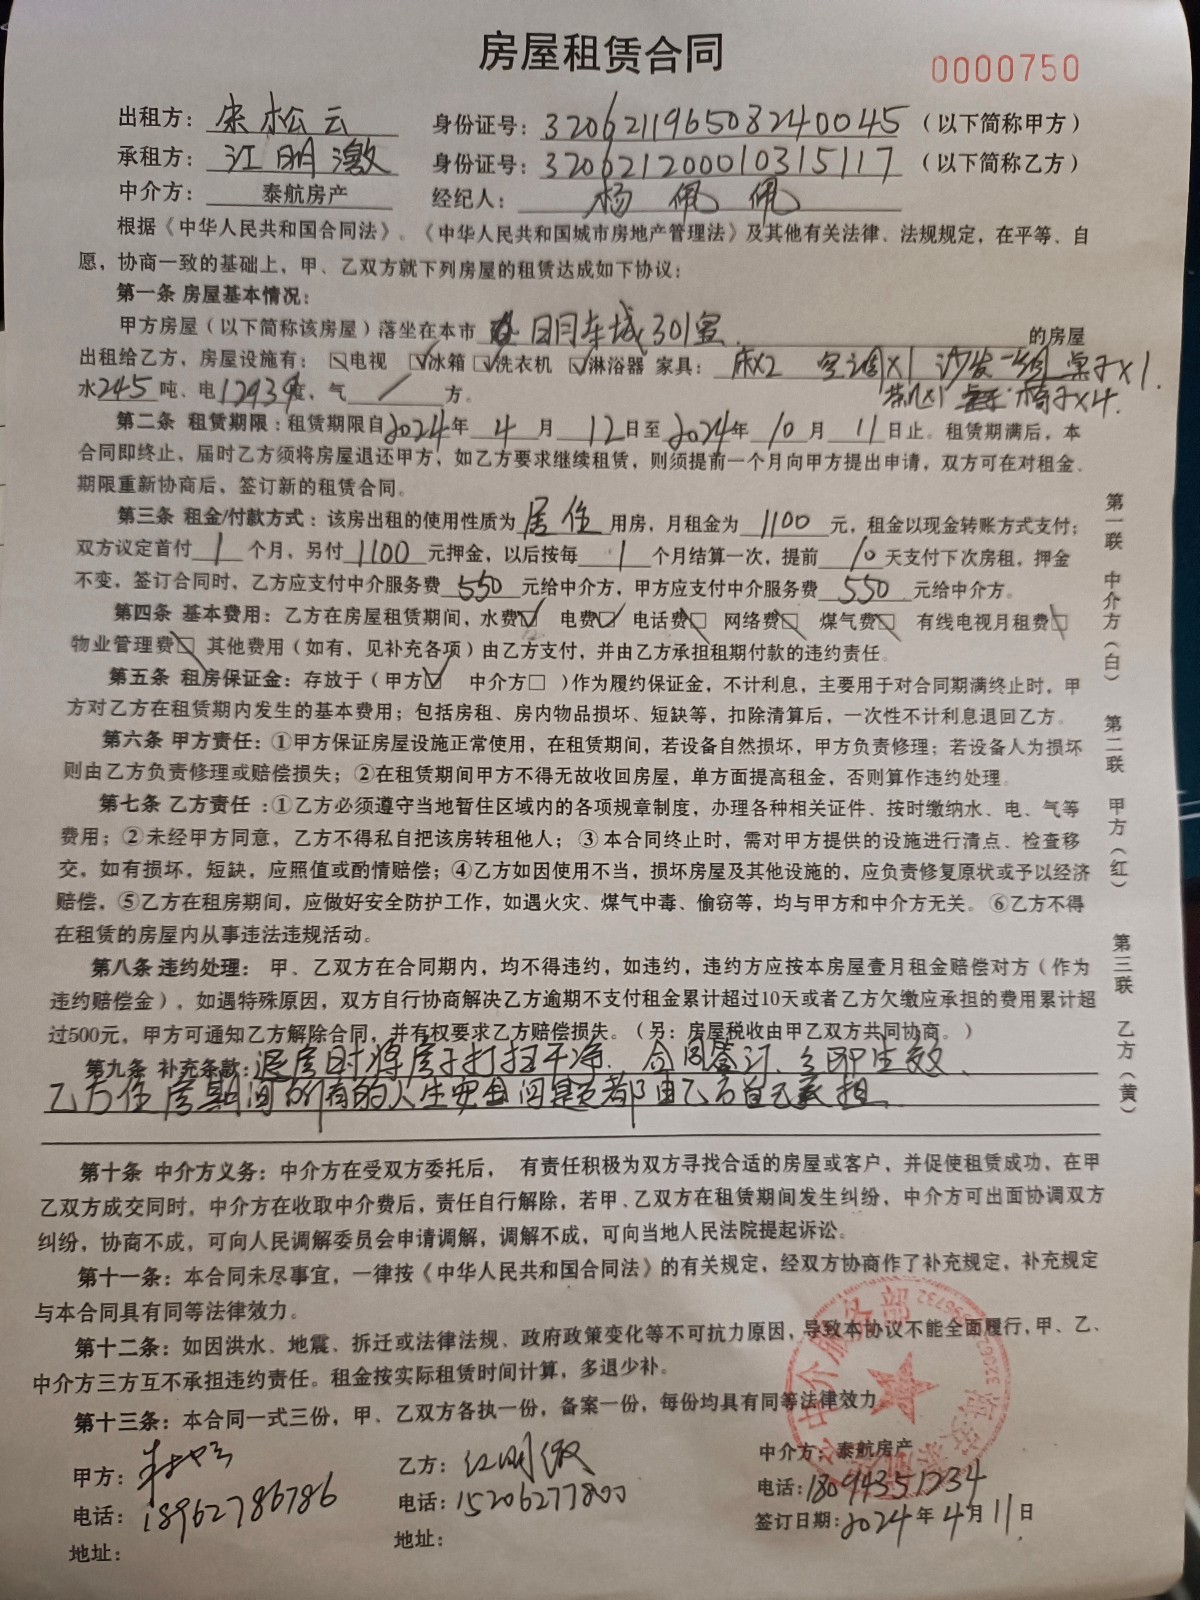 房屋租赁合同
0000750
出租方：宋松云 身份证号：320621196508240045（以下简称甲方）
承租方：江明澈 身份证号：320621200010315117（以下简称乙方）
中介方：泰航房产 经纪人：杨佩佩
根据《中华人民共和国合同法》、《中华人民共和国城市房地产管理法》及其他有关法律、法规规定，在平等、自
愿，协商一致的基础上，甲、乙双方就下列房屋的租赁达成如下协议：
第一条 房屋基本情况：
甲方房屋（以下简称该房屋）落坐在本市 明东城301室 的房屋
出租给乙方，房屋设施有：☑电视 ☑冰箱 ☑洗衣机 ☑淋浴器 家具：床x2 空调x1 沙发一组 桌子x1.
水245吨、电12939度，气/方。 茶几x1 椅子x4.
第二条 租赁期限：租赁期限自2024年4月12日至2024年10月11日止。租赁期满后，本
合同即终止，届时乙方须将房屋退还甲方，如乙方要求继续租赁，则须提前一个月向甲方提出申请，双方可在对租金、
期限重新协商后、签订新的租赁合同。
第三条 租金/付款方式：该房出租的使用性质为居住用房，月租金为1100元，租金以现金转账方式支付；
双方议定首付1个月，另付1100元押金，以后按每1个月结算一次，提前10天支付下次房租，押金
不变，签订合同时，乙方应支付中介服务费550元给中介方，甲方应支付中介服务费550元给中介方。
第四条 基本费用：乙方在房屋租赁期间，水费☑ 电费☑ 电话费□ 网络费□ 煤气费□ 有线电视月租费□
物业管理费□ 其他费用（如有，见补充各项）由乙方支付，并由乙方承担租期付款的违约责任。
第五条 租房保证金：存放于（甲方☑ 中介方□ ）作为履约保证金，不计利息，主要用于对合同期满终止时，甲
方对乙方在租赁期内发生的基本费用；包括房租、房内物品损坏、短缺等，扣除清算后，一次性不计利息退回乙方。
第六条 甲方责任：①甲方保证房屋设施正常使用，在租赁期间，若设备自然损坏，甲方负责修理；若设备人为损坏
则由乙方负责修理或赔偿损失；②在租赁期间甲方不得无故收回房屋，单方面提高租金，否则算作违约处理。
第七条 乙方责任 ：①乙方必须遵守当地暂住区域内的各项规章制度，办理各种相关证件、按时缴纳水、电、气等
费用；②未经甲方同意，乙方不得私自把该房转租他人；③本合同终止时，需对甲方提供的设施进行清点、检查移
交，如有损坏，短缺，应照值或酌情赔偿；④乙方如因使用不当，损坏房屋及其他设施的，应负责修复原状或予以经济
赔偿，⑤乙方在租房期间，应做好安全防护工作，如遇火灾、煤气中毒、偷窃等，均与甲方和中介方无关。⑥乙方不得
在租赁的房屋内从事违法违规活动。
第八条 违约处理： 甲、乙双方在合同期内，均不得违约，如违约，违约方应按本房屋壹月租金赔偿对方（作为
违约赔偿金），如遇特殊原因，双方自行协商解决乙方逾期不支付租金累计超过10天或者乙方欠缴应承担的费用累计超
过500元，甲方可通知乙方解除合同，并有权要求乙方赔偿损失。（另：房屋税收由甲乙双方共同协商。）
第九条 补充条款：退房时将房子打扫干净、合同签订、立即生效、
乙方住房期间所有的人生安全问题都由乙方自己承担.
第十条 中介方义务：中介方在受双方委托后， 有责任积极为双方寻找合适的房屋或客户，并促使租赁成功，在甲
乙双方成交同时，中介方在收取中介费后，责任自行解除，若甲、乙双方在租赁期间发生纠纷，中介方可出面协调双方
纠纷，协商不成，可向人民调解委员会申请调解，调解不成，可向当地人民法院提起诉讼。
第十一条：本合同未尽事宜，一律按《中华人民共和国合同法》的有关规定，经双方协商作了补充规定，补充规定
与本合同具有同等法律效力。
第十二条：如因洪水、地震、拆迁或法律法规、政府政策变化等不可抗力原因，导致本协议不能全面履行，甲、乙、
中介方三方互不承担违约责任。租金按实际租赁时间计算，多退少补。
第十三条：本合同一式三份，甲、乙双方各执一份，备案一份，每份均具有同等法律效力
甲方：宋松云 乙方：江明澈 中介方：泰航房产
电话：18962786786 电话：15206277800 电话：18094351234
地址： 地址： 签订日期：2024年4月11日
第一联 中介方（白） 第二联 甲方（红） 第三联 乙方（黄）
中介服务部